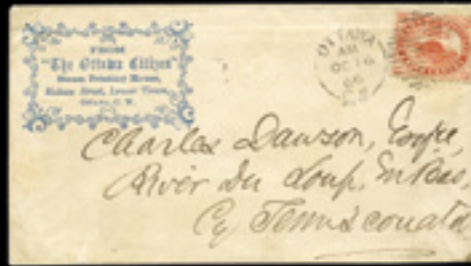 FROM
"The Ottawa Citizen"
Steam Printing House,
Street, Lower Town,
Ottawa, C. W.
OTTAWA
AM
OC 16
66
Charles Dawson, Esqre,
River Du Loup, En Bas,
Cy Temisconata